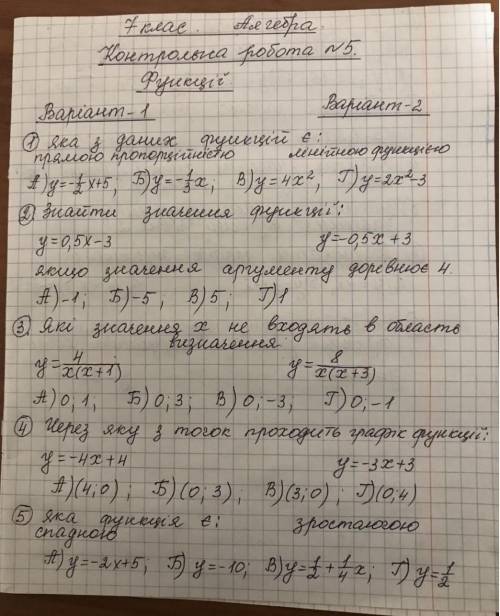 7 клас. Алгебра.
Контрольна робота №5.
Функції
Варіант-1 Варіант-2
① Яка з даних функцій є:
прямою пропорційністю лінійною функцією
А) y=-1/2x+5; Б) y=-1/3x; В) y=4x²; Г) y=2x²-3
② Знайти значення функції:
y=0,5x-3 y=-0,5x+3
якщо значення аргументу дорівнює 4.
А)-1; Б)-5, В)5; Г)1
③ Які значення x не входять в область
визначення
y=4/x(x+1) y=8/x(x+3)
А) 0; 1, Б) 0; 3; В) 0; -3; Г) 0; -1
④ Через яку з точок проходить графік функції:
y=-4x+4 y=-3x+3
А)(4;0); Б)(0;3), В)(3;0); Г)(0;4)
⑤ Яка функція є: зростаючою
спадною
А) y=-2x+5; Б) y=-10; В) y=1/2+1/4x; Г) y=1/2